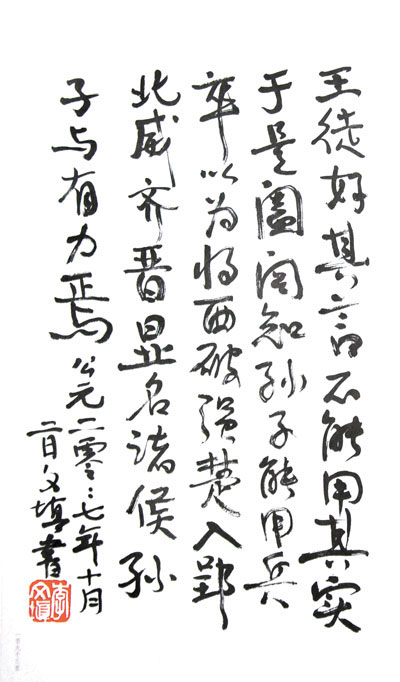 王徒好其言不能用其实
于是阖闾知孙子能用兵
卒以为将西破强楚入郢
北威齐晋显名诸侯孙
子与有力焉 公元二零零七年十月
二日文書